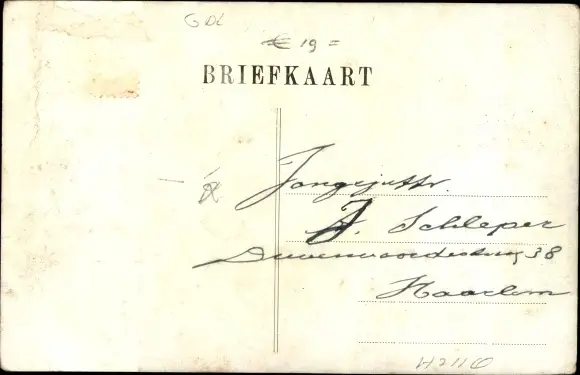 GDL
€ 19 =
BRIEFKAART
Jongejuffr.
J. Schleper
Duvenvoordestraat 38
Haarlem
H2110